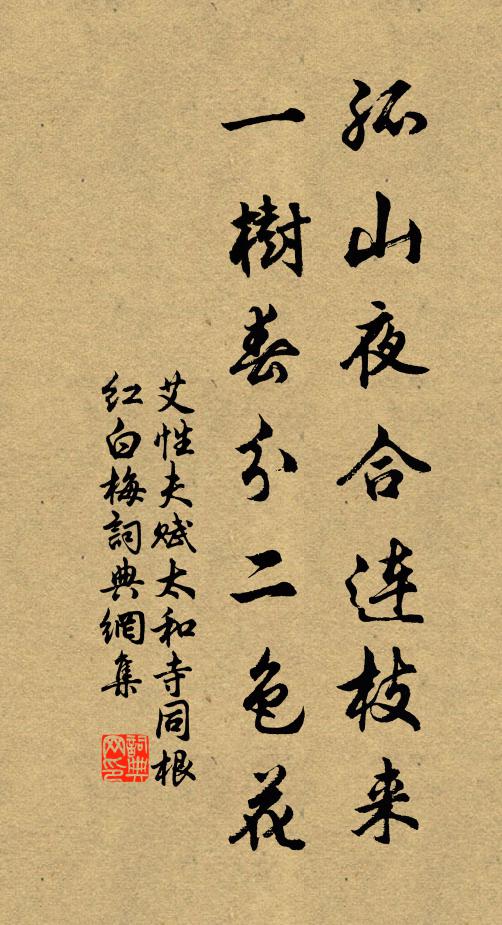 孤山夜合连枝来
一樹春分二色花
艾性夫赋太和寺同根
红白梅詞典網集
詞典网印